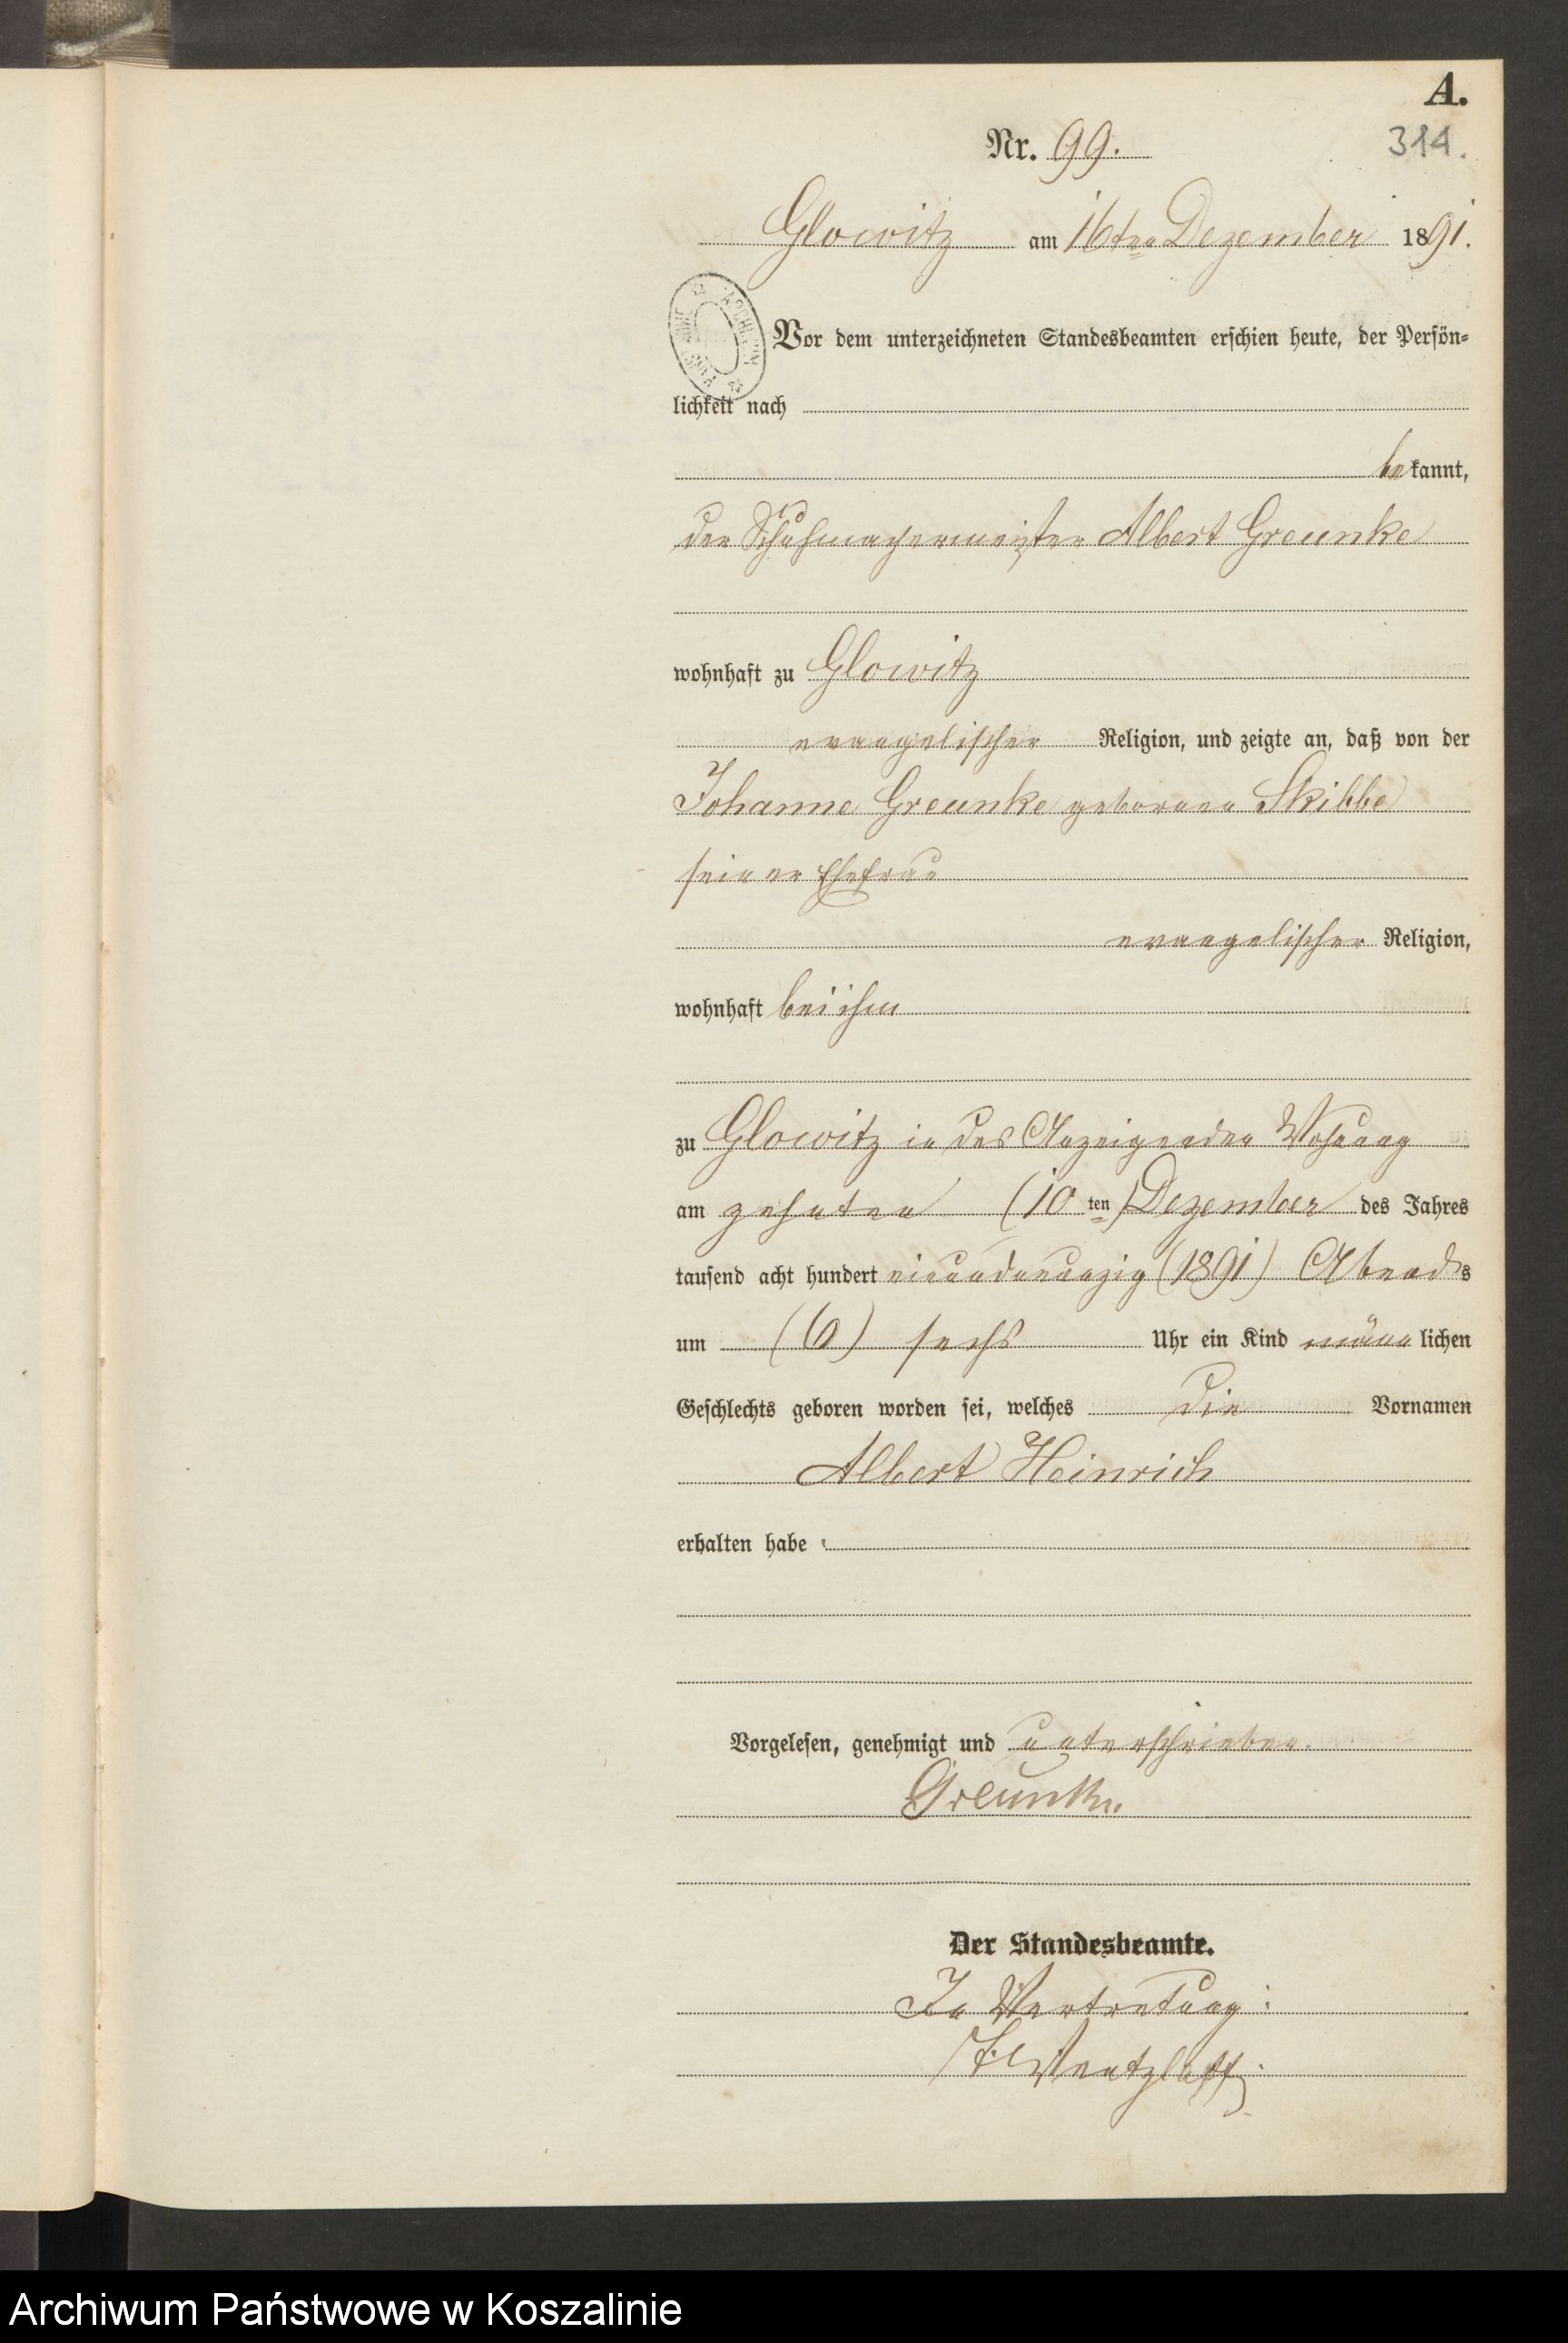 A.
Nr. 99.
314.
Glowitz am 16ten Dezember 1891.
Vor dem unterzeichneten Standesbeamten erschien heute, der Persön-
lichkeit nach
bekannt,
der Schuhmachermeister Albert Greunke
wohnhaft zu Glowitz
evangelischer Religion, und zeigte an, daß von der
Johanne Greunke geborenen Skibbe
seiner Ehefrau
evangelischer Religion,
wohnhaft bei ihm
zu Glowitz in des Anzeigenden Wohnung
am zehnten (10 ten) Dezember des Jahres
tausend acht hundert einundneunzig (1891) Abends
um (6) sechs Uhr ein Kind männlichen
Geschlechts geboren worden sei, welches die Vornamen
Albert Heinrich
erhalten habe
Vorgelesen, genehmigt und unterschrieben.
Greunke.
Der Standesbeamte.
In Vertretung:
Wentzlaff.
Archiwum Państwowe w Koszalinie